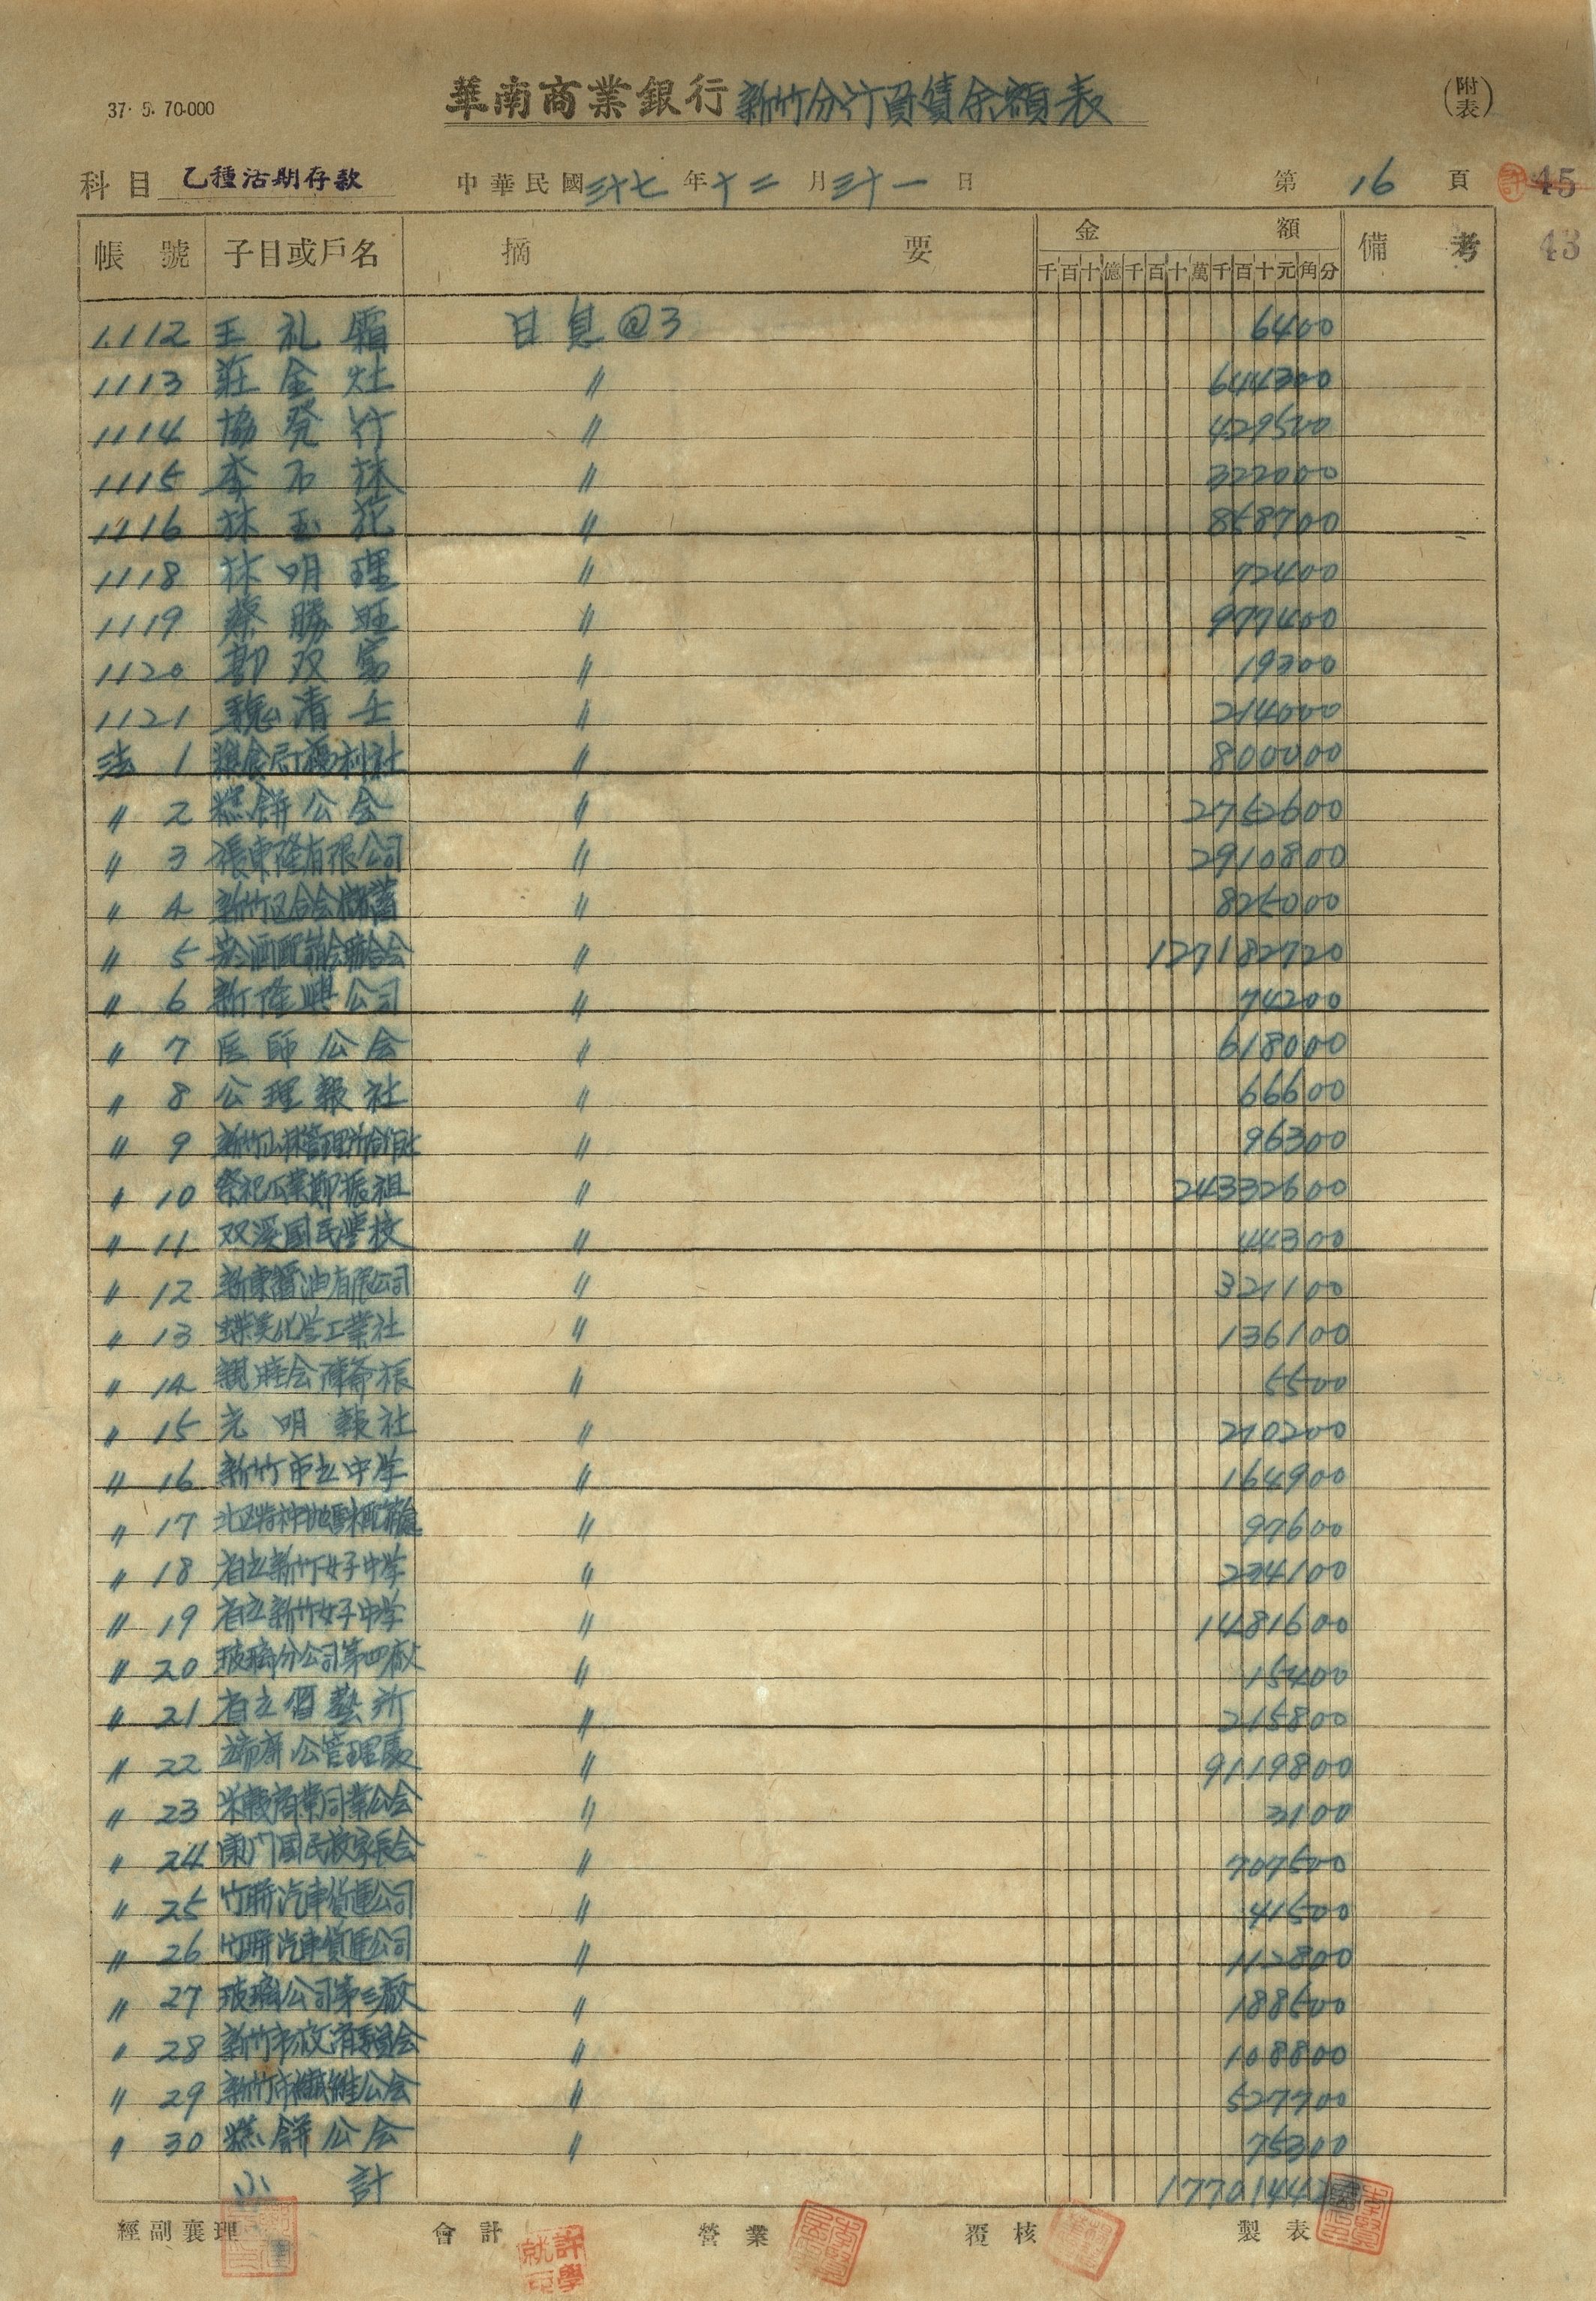 37. 5. 70.000
華南商業銀行新竹分行負債余額表
(附表)
科目 乙種活期存款 中華民國三十七年十二月三十一日 第16頁 許 45
43
帳號 子目或戶名 摘要 金額 備考
千百十億千百十萬千百十元角分
1112 王礼霜 日息@3 6400
1113 莊金灶 〃 644300
1114 協発行 〃 429500
1115 李石林 〃 322000
1116 林玉花 〃 858700
1118 林明理 〃 72400
1119 蔡勝旺 〃 977400
1120 鄭双寅 〃 19300
1121 魏清壬 〃 214000
法 1 粮食局福利社 〃 800000
〃 2 糕餅公会 〃 2752600
〃 3 振東隆有限公司 〃 2910800
〃 4 新竹区合会儲蓄 〃 825000
〃 5 菸酒配銷会聯合会 〃 127182720
〃 6 新隆興公司 〃 74200
〃 7 医師公会 〃 618000
〃 8 公理報社 〃 66600
〃 9 新竹山林管理所合作社 〃 96300
〃 10 祭祀公業鄭振祖 〃 24332600
〃 11 双溪国民学校 〃 44300
〃 12 新東醤油有限公司 〃 321100
〃 13 美化学工業社 〃 136100
〃 14 親睦会陳希振 〃 5500
〃 15 光明報社 〃 210200
〃 16 新竹市立中学 〃 164900
〃 17 北区 〃 97600
〃 18 省立新竹女子中学 〃 234100
〃 19 省立新竹女子中学 〃 1481600
〃 20 玻璃分公司第四廠 〃 15400
〃 21 省立習藝所 〃 215800
〃 22 公管理處 〃 9119800
〃 23 米穀商業同業公会 〃 3100
〃 24 東門国民校家長会 〃 707500
〃 25 竹聯汽車貨運公司 〃 41500
〃 26 竹聯汽車貨運公司 〃 112800
〃 27 玻璃公司第三廠 〃 188500
〃 28 新竹市 会 〃 108800
〃 29 新竹市纖維公会 〃 527700
〃 30 糕餅公会 〃 75300
小計 17701442
經副襄理 會計 營業 覆核 製表
許學就